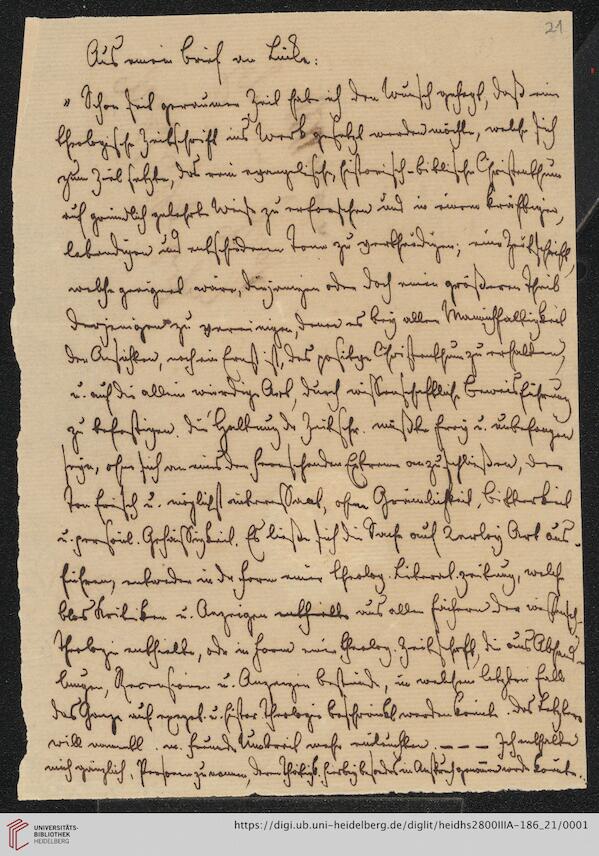 21
Aus einem Brief an Lücke:
„ Schon seit geraumer Zeit habe ich den Wunsch gehegt, daß eine
theologische Zeitschrift ins Werk gesetzt werden möchte, welche sich
zum Ziel setzte, das rein evangelische, historisch-biblische Christenthum
auf gründlich gelehrte Weise zu erforschen und in einem kräftigen,
lebendigen und entschiedenen Tone zu vertheidigen; eine Zeitschrift,
welche geeignet wäre, diejenigen oder doch einen größeren Theil
derjenigen zu vereinigen, denen es bey aller Mannichfaltigkeit
der Ansichten, noch ein Ernst ist, das positive Christenthum zu erhalten,
u. auf die allein würdige Art, durch wissenschaftliche Beweisführung
zu befestigen. Die Haltung der Zeitschr. müßte frey u. unbefangen
seyn, ohne sich an eins der herrschenden Extreme anzuschließen, der
Ton frisch u. möglichst interessant, ohne Grämlichkeit, Bitterkeit
u. persönl. Gehässigkeit. Es ließe sich die Sache auf zweierley Art aus-
führen, entweder in der Form einer theolog. Literat.zeitung, welche
blos Kritiken u. Anzeigen aus allen Fächern der
Theologie enthielte, oder in Form einer theolog. Zeitschrift, die aus Abhand-
lungen, Recensionen u. Anzeigen bestünde, in welchem letzten Fall
das Ganze auf exeget. u. histor. Theologie beschränkt werden könnte. Das Letztere
will m. Freunde Umbreit mehr einleuchten. – – – – Ich enthalte
mich gänzlich, Personen zu nennen, deren hierbey besonders in Anspruch genommen werden könnte.
UNIVERSITÄTS-
BIBLIOTHEK
HEIDELBERG
https://digi.ub.uni-heidelberg.de/diglit/heidhs2800IIIA-186_21/0001